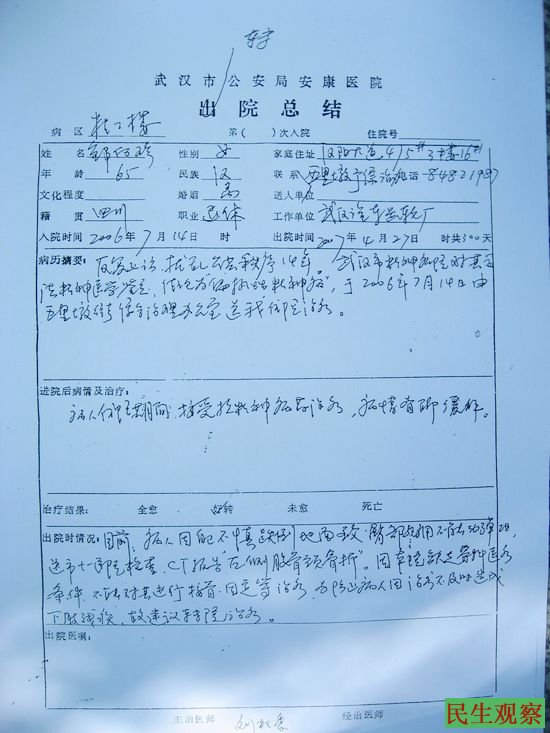 武汉市公安局安康医院
出院总结
病区 第( )次入院 住院号
姓名 性别 女 家庭住址 汉阳大道415#3楼16#
年龄 65 民族 汉 联系 电话 8482198
文化程度 婚姻 离 送人单位
籍贯 四川 职业 退休 工作单位 武汉汽车齿轮厂
入院时间 2006年7月14日 时 出院时间 2007年4月27日 时共300天
病历摘要: 反复上访,扰乱公共秩序14年。武汉市精神病医院对其司
法精神医学鉴定,结论为"偏执性精神病",于2006年7月14日由
五里墩街综合治理办公室送我院治疗。
进院后病情及治疗:
病人住院期间,接受抗精神病药治疗,病情有所缓解。
治疗结果: 全愈 好转 未愈 死亡
出院时情况: 目前,病人因不慎跌倒地面致
送市十一医院检查,CT报告"左侧股骨颈骨折"。因
条件,不能对其进行接骨、固定等治疗,为防止病人因治疗不及时造成
下肢残疾,故建议
出院医嘱:
主治医师 经治医师
民生观察